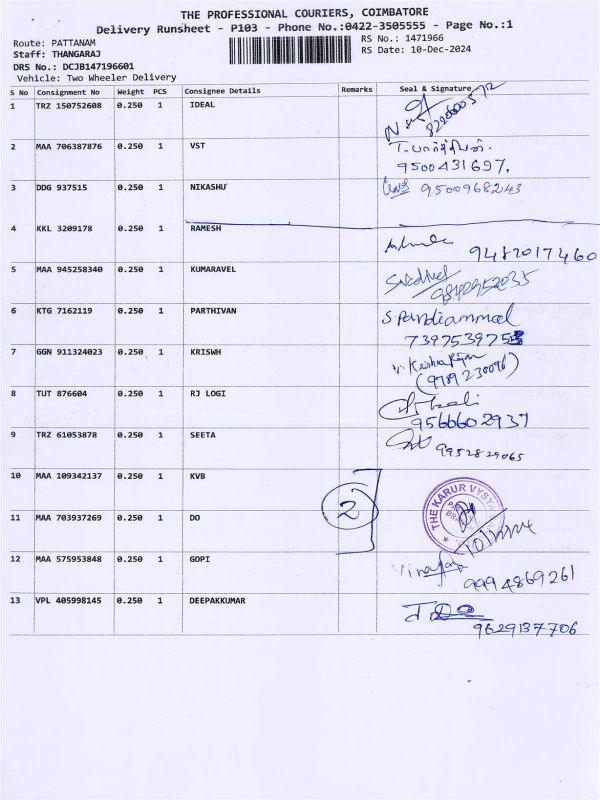 THE PROFESSIONAL COURIERS, COIMBATORE
Delivery Runsheet - P103 - Phone No.:0422-3505555 - Page No.:1
Route: PATTANAM
RS No.: 1471966
Staff: THANGARAJ
RS Date: 10-Dec-2024
DRS No.: DCJB147196601
Vehicle: Two Wheeler Delivery
S No Consignment No Weight PCS Consignee Details Remarks Seal & Signature
1 TRZ 150752608 0.250 1 IDEAL
2 MAA 706387876 0.250 1 VST T.
9500431697.
3 DDG 937515 0.250 1 NIKASHU 9500968243
4 KKL 3209178 0.250 1 RAMESH
9482017460
5 MAA 945258340 0.250 1 KUMARAVEL
9840952035
6 KTG 7162119 0.250 1 PARTHIVAN S.Pandiammal
7397539753
7 GGN 911324023 0.250 1 KRISWH
(9789230096)
8 TUT 876604 0.250 1 RJ LOGI
9566602937
9 TRZ 61053878 0.250 1 SEETA
9952829065
10 MAA 109342137 0.250 1 KVB
2
THE KARUR VYSYA
11 MAA 703937269 0.250 1 DO
12 MAA 575953848 0.250 1 GOPI
9994869261
13 VPL 405998145 0.250 1 DEEPAKKUMAR
9629137706